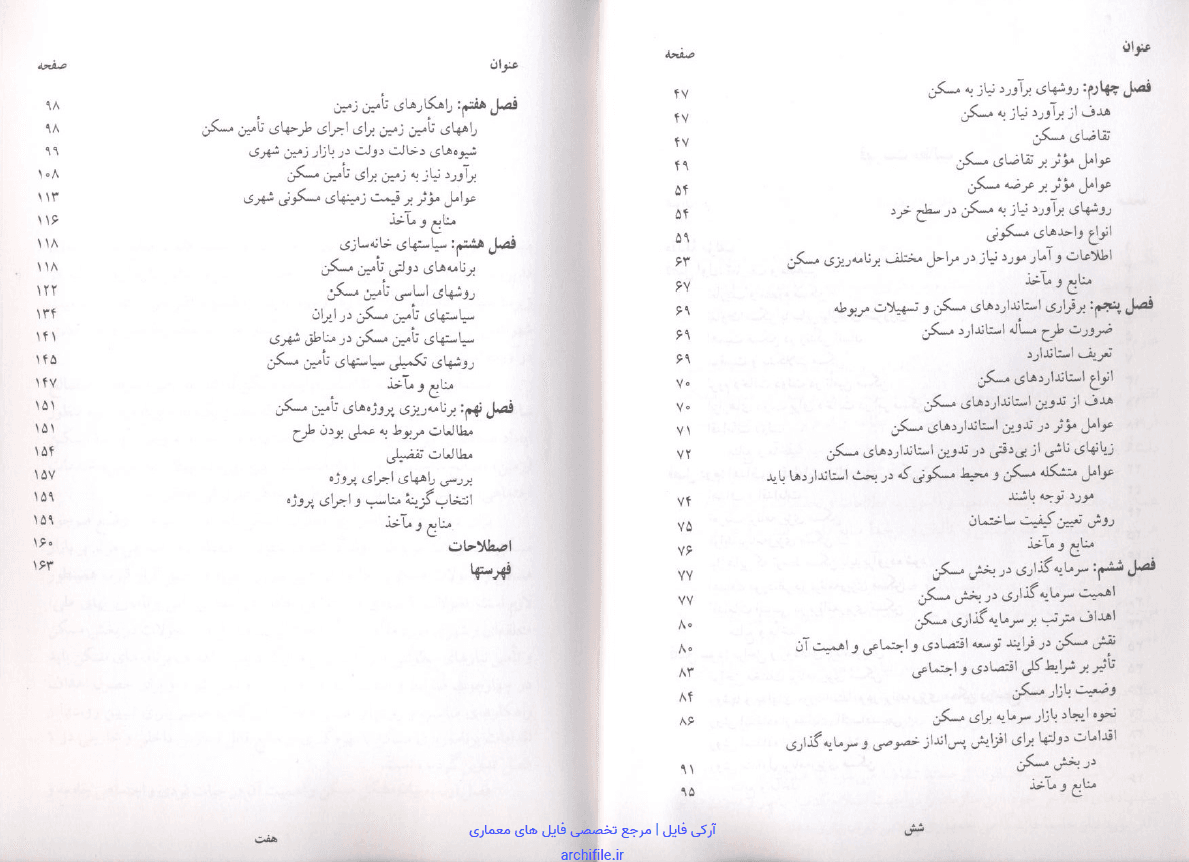 عنوان صفحه
فصل چهارم: روشهای برآورد نیاز به مسکن ۴۷
هدف از برآورد نیاز به مسکن ۴۷
تقاضای مسکن ۴۷
عوامل مؤثر بر تقاضای مسکن ۴۹
عوامل مؤثر بر عرضه مسکن ۵۴
روشهای برآورد نیاز به مسکن در سطح خرد ۵۴
انواع واحدهای مسکونی ۵۹
اطلاعات و آمار مورد نیاز در مراحل مختلف برنامه‌ریزی مسکن ۶۳
منابع و مآخذ ۶۷
فصل پنجم: برقراری استانداردهای مسکن و تسهیلات مربوطه ۶۹
ضرورت طرح مسأله استاندارد مسکن ۶۹
تعریف استاندارد ۶۹
انواع استانداردهای مسکن ۷۰
هدف از تدوین استانداردهای مسکن ۷۰
عوامل مؤثر در تدوین استانداردهای مسکن ۷۱
زیانهای ناشی از بی‌دقتی در تدوین استانداردهای مسکن ۷۲
عوامل متشکله مسکن و محیط مسکونی‌که در بحث استانداردها باید
مورد توجه باشند ۷۴
روش تعیین کیفیت ساختمان ۷۵
منابع و مآخذ ۷۶
فصل ششم: سرمایه‌گذاری در بخش مسکن ۷۷
اهمیت سرمایه‌گذاری در بخش مسکن ۷۷
اهداف مترتب بر سرمایه‌گذاری مسکن ۸۰
نقش مسکن در فرایند توسعه اقتصادی و اجتماعی و اهمیت آن ۸۰
تأثیر بر شرایط کلی اقتصادی و اجتماعی ۸۳
وضعیت بازار مسکن ۸۴
نحوه ایجاد بازار سرمایه برای مسکن ۸۶
اقدامات دولتها برای افزایش پس‌انداز خصوصی و سرمایه‌گذاری
در بخش مسکن ۹۱
منابع و مآخذ ۹۵
شش
عنوان صفحه
فصل هفتم: راهکارهای تأمین زمین ۹۸
راههای تأمین زمین برای اجرای طرحهای تأمین مسکن ۹۸
شیوه‌های دخالت دولت در بازار زمین شهری ۹۹
برآورد نیاز به زمین برای تأمین مسکن ۱۰۸
عوامل مؤثر بر قیمت زمینهای مسکونی شهری ۱۱۳
منابع و مآخذ ۱۱۶
فصل هشتم: سیاستهای خانه‌سازی ۱۱۸
برنامه‌های دولتی تأمین مسکن ۱۱۸
روشهای اساسی تأمین مسکن ۱۲۲
سیاستهای تأمین مسکن در ایران ۱۳۴
سیاستهای تأمین مسکن در مناطق شهری ۱۴۱
روشهای تکمیلی سیاستهای تأمین مسکن ۱۴۵
منابع و مآخذ ۱۴۷
فصل نهم: برنامه‌ریزی پروژه‌های تأمین مسکن ۱۵۱
مطالعات مربوط به عملی بودن طرح ۱۵۱
مطالعات تفضیلی ۱۵۴
بررسی راههای اجرای پروژه ۱۵۷
انتخاب گزینهٔ مناسب و اجرای پروژه ۱۵۹
منابع و مآخذ ۱۵۹
اصطلاحات ۱۶۰
فهرستها ۱۶۳
هفت
آرکی فایل | مرجع تخصصی فایل های معماری
archifile.ir